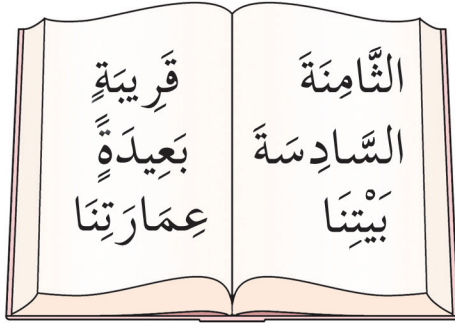 الثَّامِنَةَ
السَّادِسَةَ
بَيْتِنَا
قَرِيبَةٍ
بَعِيدَةً
عِمَارَتِنَا